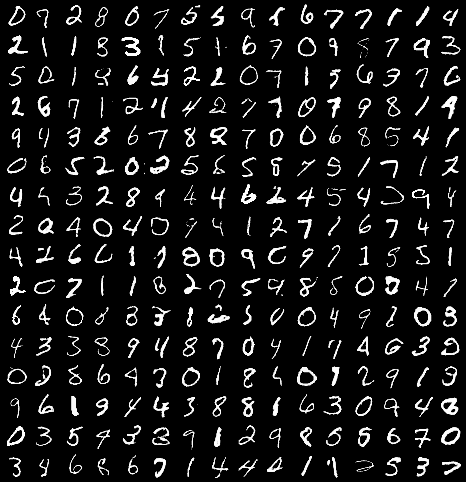 0 9 2 8 0 7 5 5 9 1 6 7 7 1 1 4
2 1 1 8 3 1 5 1 6 7 0 9 8 7 9 3
5 0 1 8 6 4 2 2 0 7 1 5 6 3 7 6
2 8 7 1 2 4 4 2 7 7 0 7 9 8 1 9
9 4 3 8 6 7 8 8 7 0 0 6 8 5 4 1
0 6 5 2 0 2 5 6 5 8 7 5 1 7 1 2
4 4 3 2 8 9 4 4 6 2 4 5 4 2 9 4
2 0 4 0 4 0 9 4 1 2 7 1 6 7 4 7
4 2 6 6 1 7 8 0 9 0 9 7 1 5 5 1
2 0 7 1 1 8 2 7 5 9 8 5 0 0 4 1
6 4 0 8 8 3 8 2 5 0 0 4 9 2 0 3
4 3 3 8 9 4 8 7 0 4 1 7 4 6 3 2
0 8 8 6 4 3 0 1 8 4 0 7 2 9 1 3
9 6 1 9 4 4 3 8 8 1 6 3 0 9 4 8
0 3 5 4 3 8 9 1 2 9 8 5 5 6 7 0
3 4 6 8 6 7 1 4 4 4 1 1 2 5 3 7